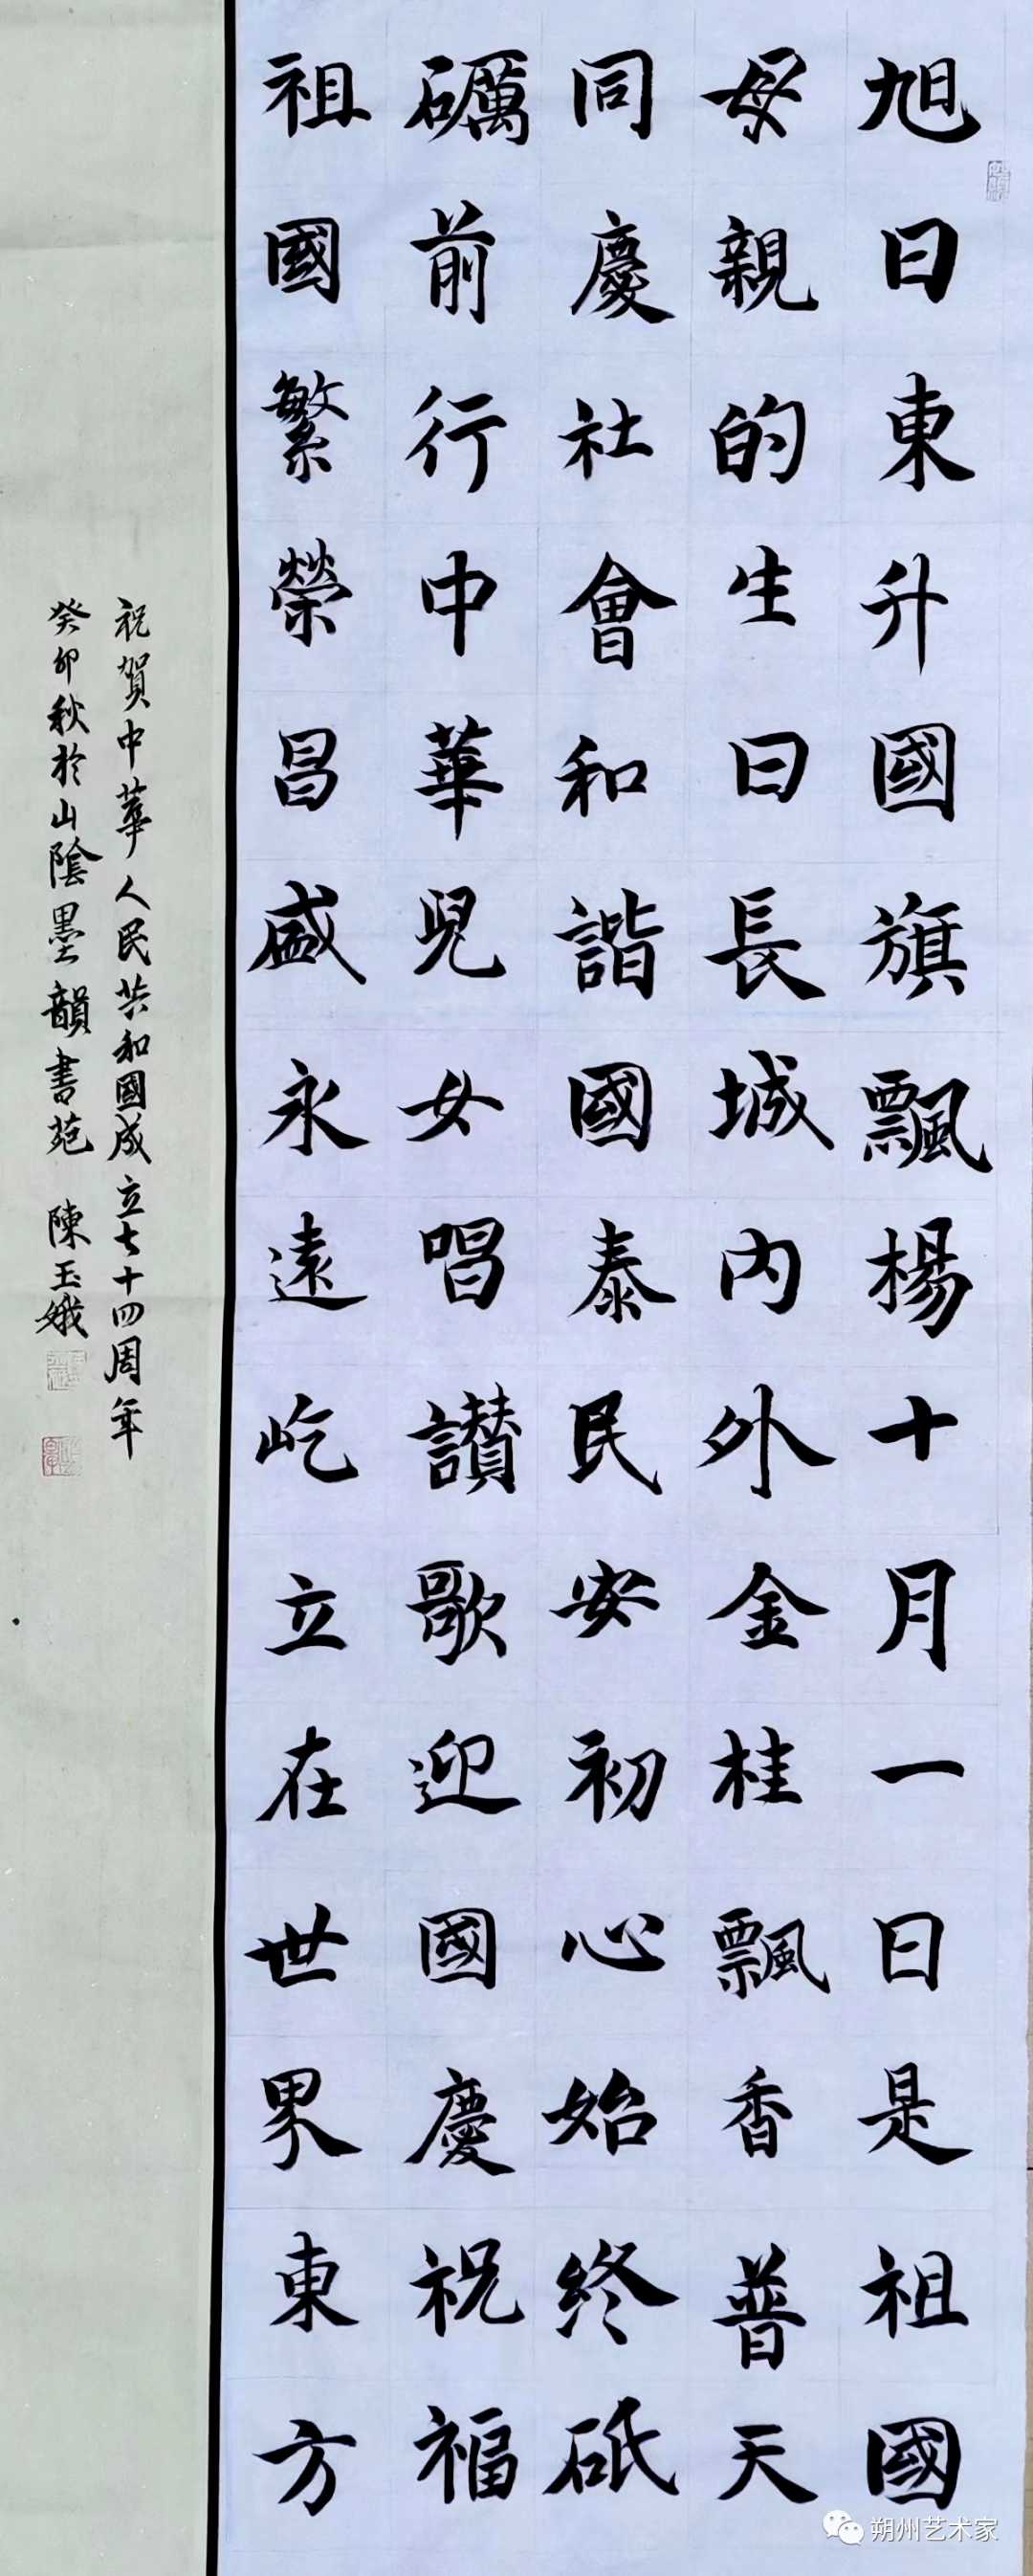 旭日東升國旗飄楊十月一日是祖國
母親的生日長城內外金桂飄香普天
同慶社會和諧國泰民安初心始終砥
礪前行中華兒女唱讃歌迎國慶祝福
祖國繁榮昌盛永遠屹立在世界東方
祝賀中華人民共和國成立七十四周年
癸卯秋於山陰墨韻書苑 陳玉娥
朔州艺术家